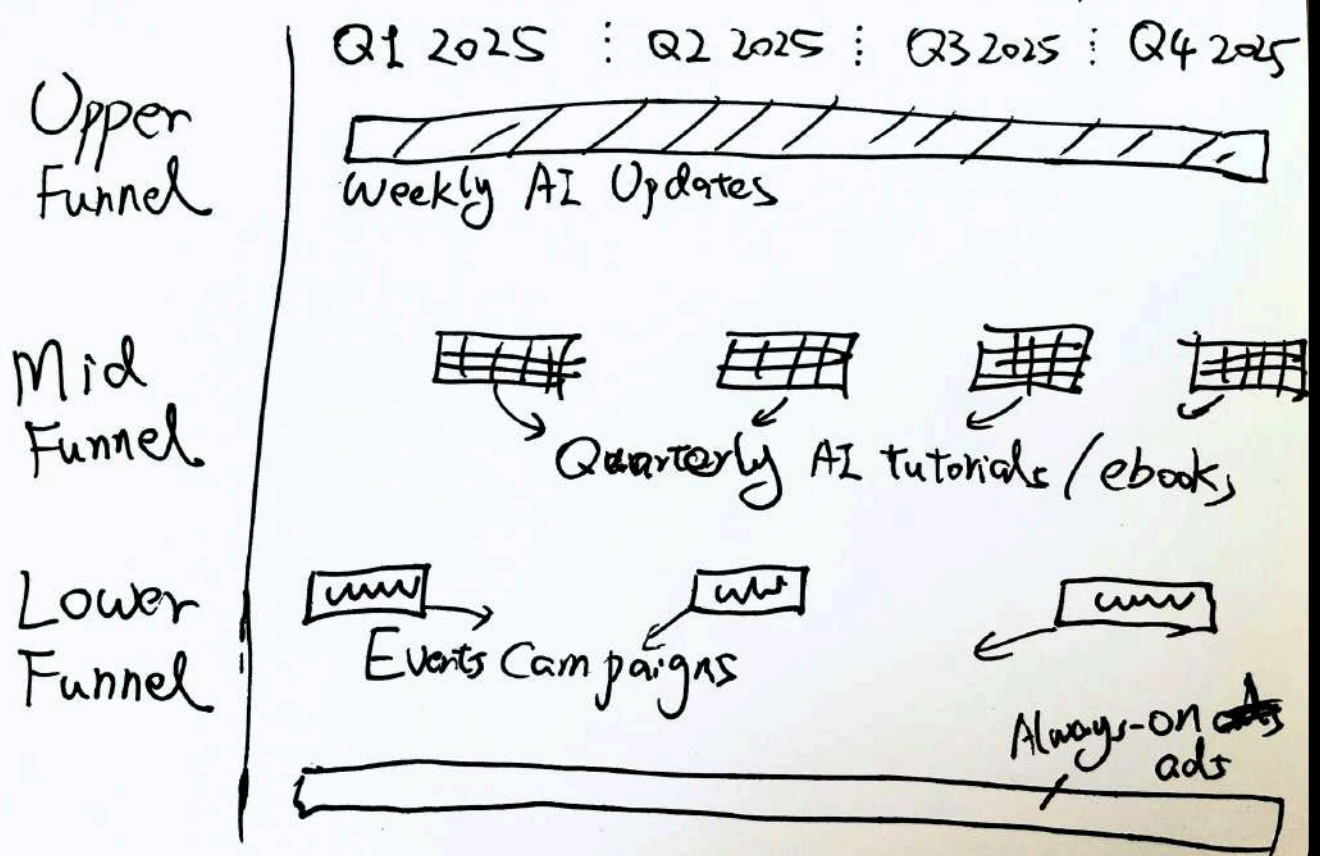 Q1 2025 ⋮ Q2 2025 ⋮ Q3 2025 ⋮ Q4 2025
Upper
Funnel
Weekly AI Updates
Mid
Funnel
Quarterly AI tutorials / ebooks
Lower
Funnel
Events Campaigns
Always-on
ads